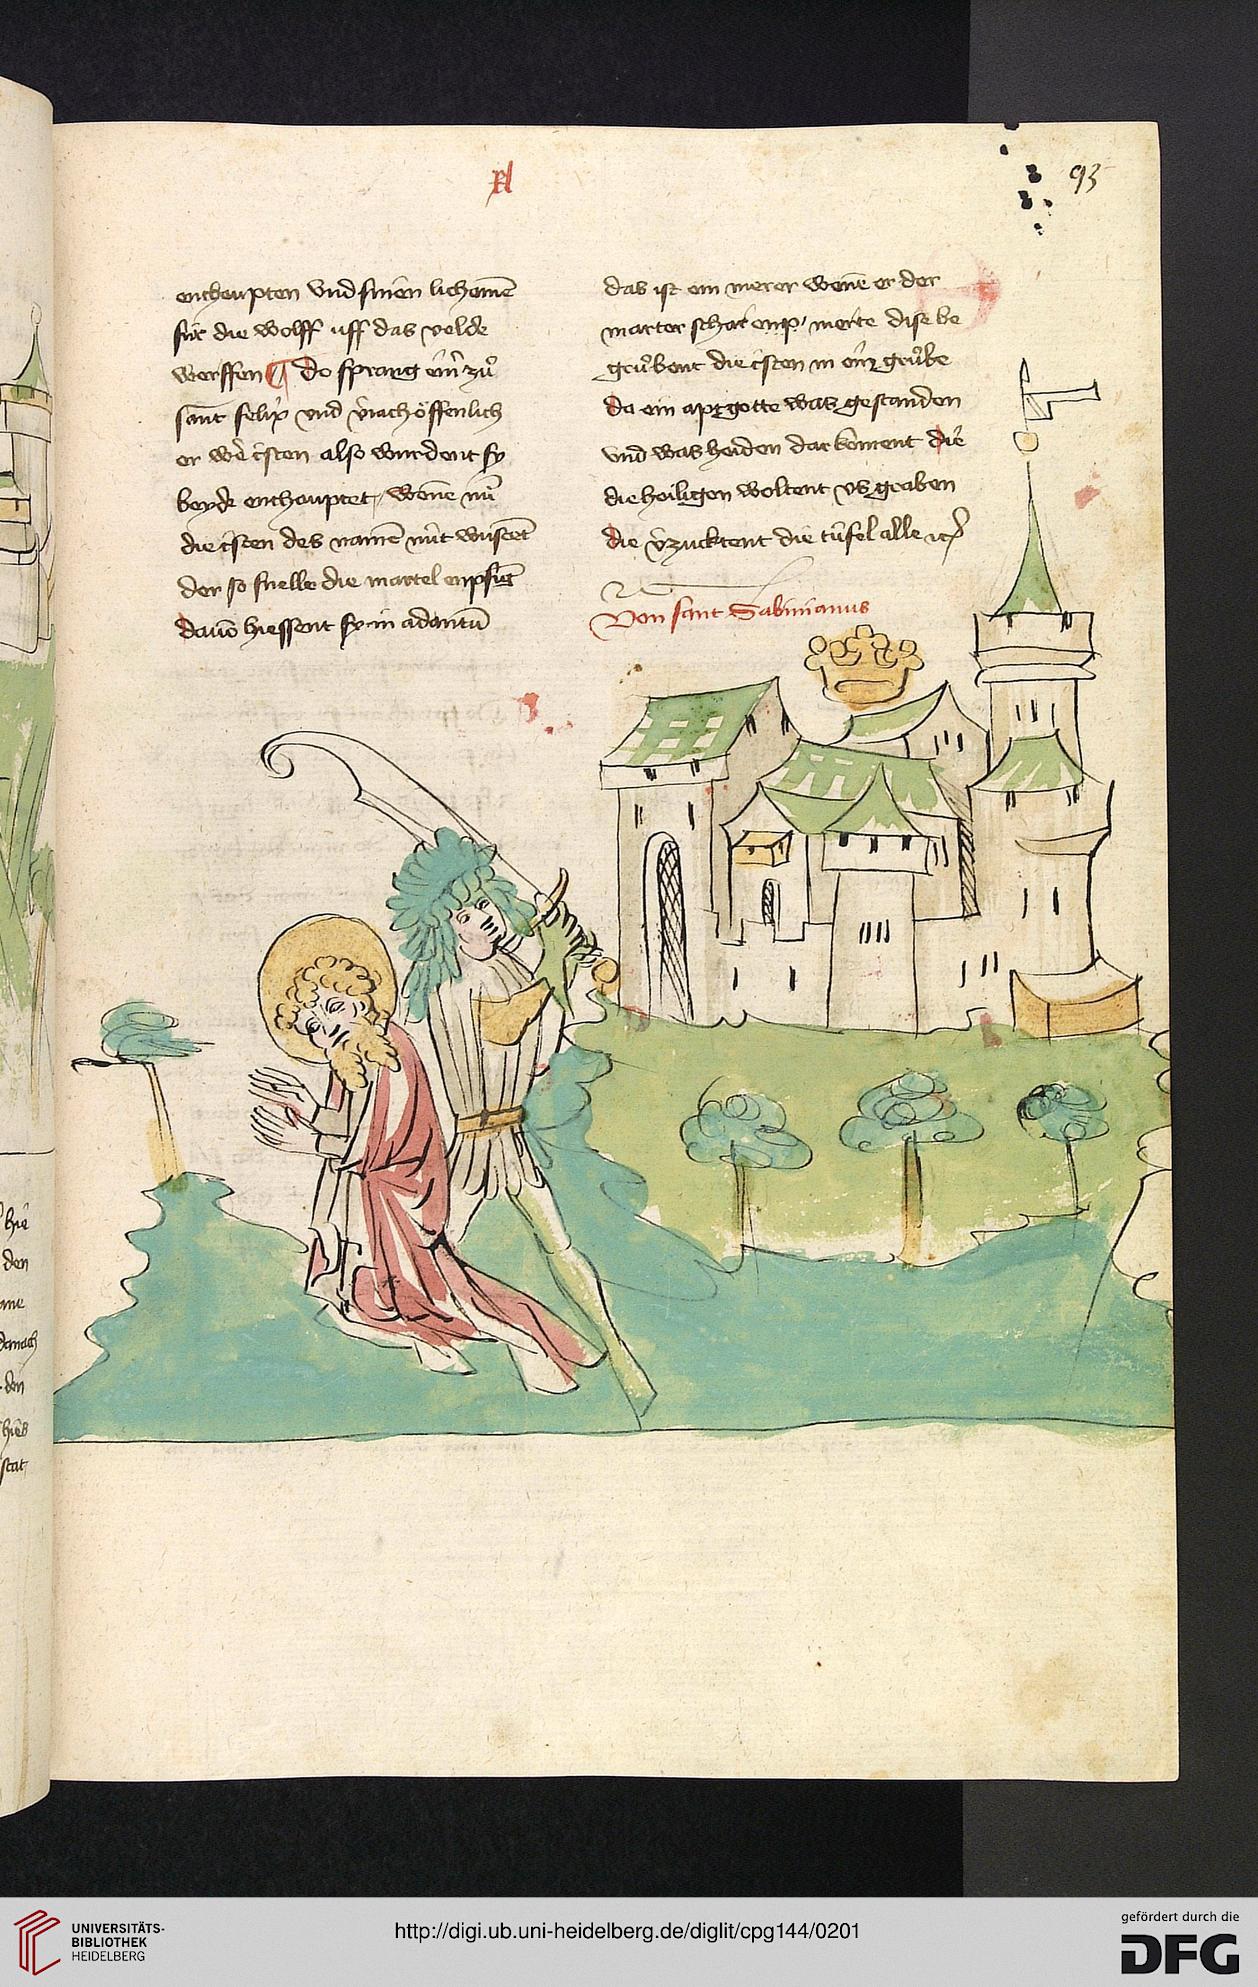 93
enthoupten vnd sinen lichomē
für die wolff uff das velde
werffen do sprang ein͛ zů
sant felix vnd v͛iach öffenlich
er wēr cristen also wurdent sy
beyde enthouptet, wenne nů
die cristen des namē nüt wustēt
der so snelle die martel enpfing
dauō hiessent sy in adauctū
das ist ein merer wenne er der
marter schar enp, merte dise be
grůbent die cristen in ein͛ grůbe
do ein aptgotte was gestanden
vnd was heiden dar koment die
die heiligen woltent vs graben
die v͛zucktent die tüfel alle
Von sant Sabinianus
hie
den
danach
den
hies
stat
UNIVERSITÄTS-
BIBLIOTHEK
HEIDELBERG
http://digi.ub.uni-heidelberg.de/diglit/cpg144/0201
gefördert durch die
DFG